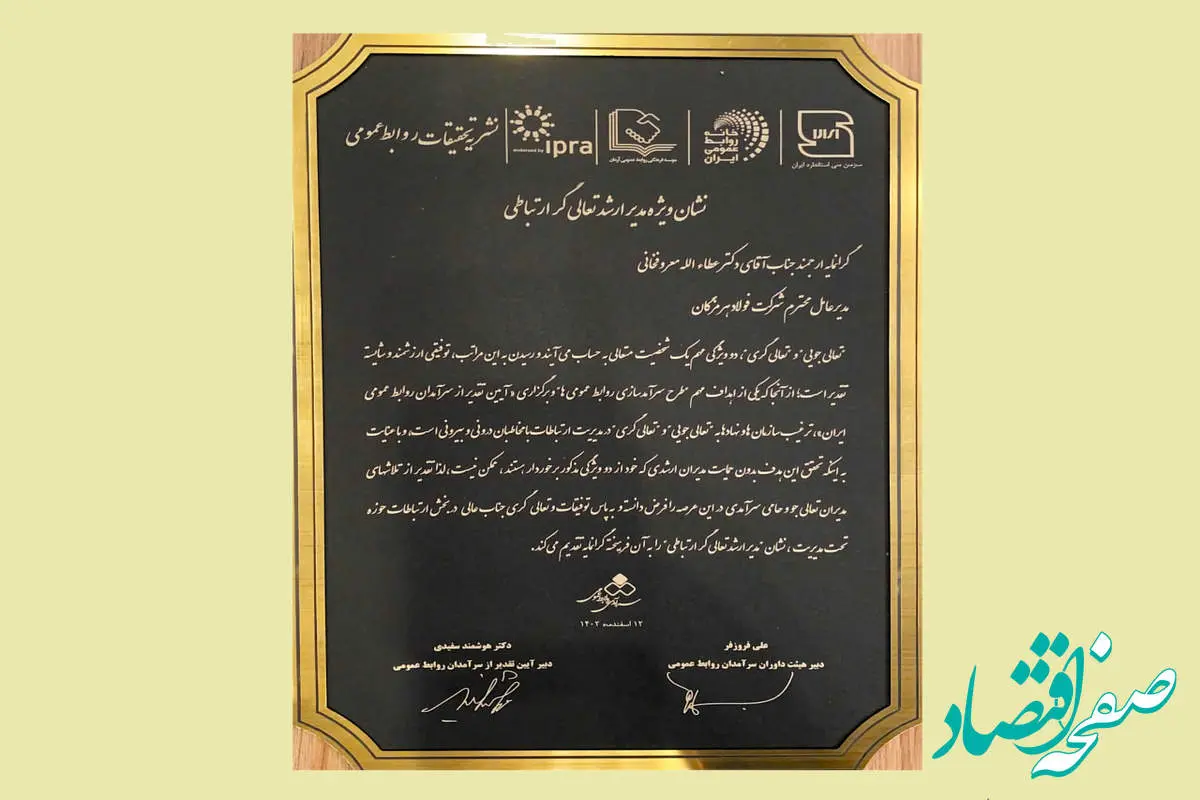 سرزمین سی استاندارد ایران
خانه
روابط
عمومی
ایران
موسسه فرهنگی روابط عمومی آرمان
endorsed by ipra
نشریه تحقیقات روابط عمومی
نشان ویژه مدیر ارشد تعالی گر ارتباطی
گرانمایه ارجمند جناب آقای دکتر عطاء الله معروفخانی
مدیرعامل محترم شرکت فولاد هرمزگان
"تعالی جویی" و "تعالی گری"، دو ویژگی مهم یک شخصیت متعالی به حساب می آیند و رسیدن به این مراتب، توفیقی ارزشمند و شایسته
تقدیر است؛ از آنجا که یکی از اهداف مهم "طرح سرآمدسازی روابط عمومی ها" و برگزاری «آیین تقدیر از سرآمدان روابط عمومی
ایران»، ترغیب سازمان ها و نهادها به "تعالی جویی" و "تعالی گری" در مدیریت ارتباطات با مخاطبان درونی و بیرونی است، و با عنایت
به اینکه تحقق این هدف بدون حمایت مدیران ارشدی که خود از دو ویژگی مذکور برخوردار هستند، ممکن نیست، لذا تقدیر از تلاشهای
مدیران تعالی جو و حامی سرآمدی در این عرصه را فرض دانسته و به پاس توفیقات و تعالی گری جناب عالی در بخش ارتباطات حوزه
تحت مدیریت، نشان "مدیر ارشد تعالی گر ارتباطی" را به آن فرهیخته گرانمایه تقدیم می کند.
۱۲ اسفندماه ۱۴۰۳
علی فروزفر
دبیر هیئت داوران سرآمدان روابط عمومی
دکتر هوشمند سفیدی
دبیر آیین تقدیر از سرآمدان روابط عمومی
صفحه اقتصاد